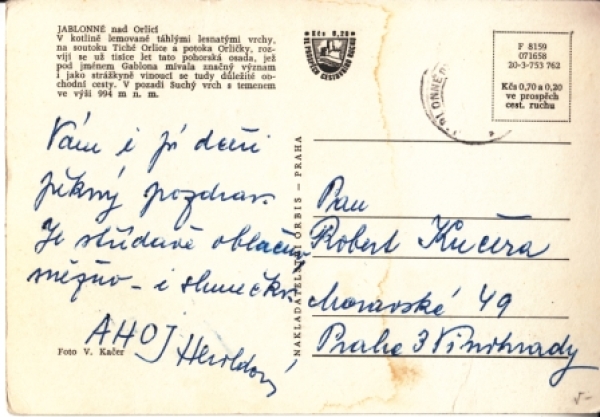 JABLONNÉ nad Orlicí
V kotlině lemované táhlými lesnatými vrchy,
na soutoku Tiché Orlice a potoka Orličky, roz-
víjí se už tisíce let tato pohorská osada, jež
pod jménem Gablona mívala značný význam
i jako strážkyně vinoucí se tudy důležité ob-
chodní cesty. V pozadí Suchý vrch s temenem
ve výši 994 m n. m.
Kčs 0,20
VE PROSPĚCH CESTOVNÍHO RUCHU
F 8159
071658
20-3-753 762
Kčs 0,70 a 0,20
ve prospěch
cest. ruchu
Vám i
pěkný pozdrav.
Je střídavě oblačno
sněžno - i slunečko.
AHOJ Heroldovi
Foto V. Kačer
NAKLADATELSTVÍ ORBIS — PRAHA
Pan
Robert Kučera
Moravské 49
Praha 3 Vinohrady